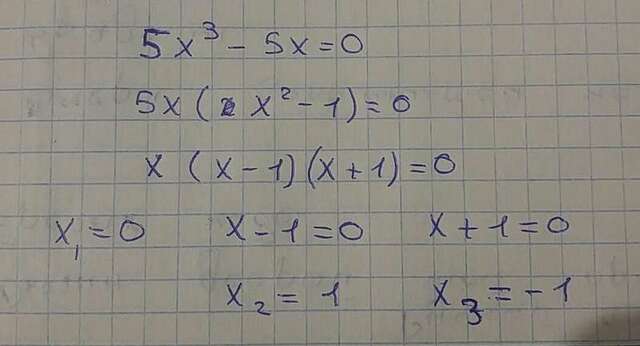 5x³ - 5x = 0
5x ( x² - 1) = 0
x (x - 1) (x + 1) = 0
x₁ = 0 x - 1 = 0 x + 1 = 0
x₂ = 1 x₃ = - 1